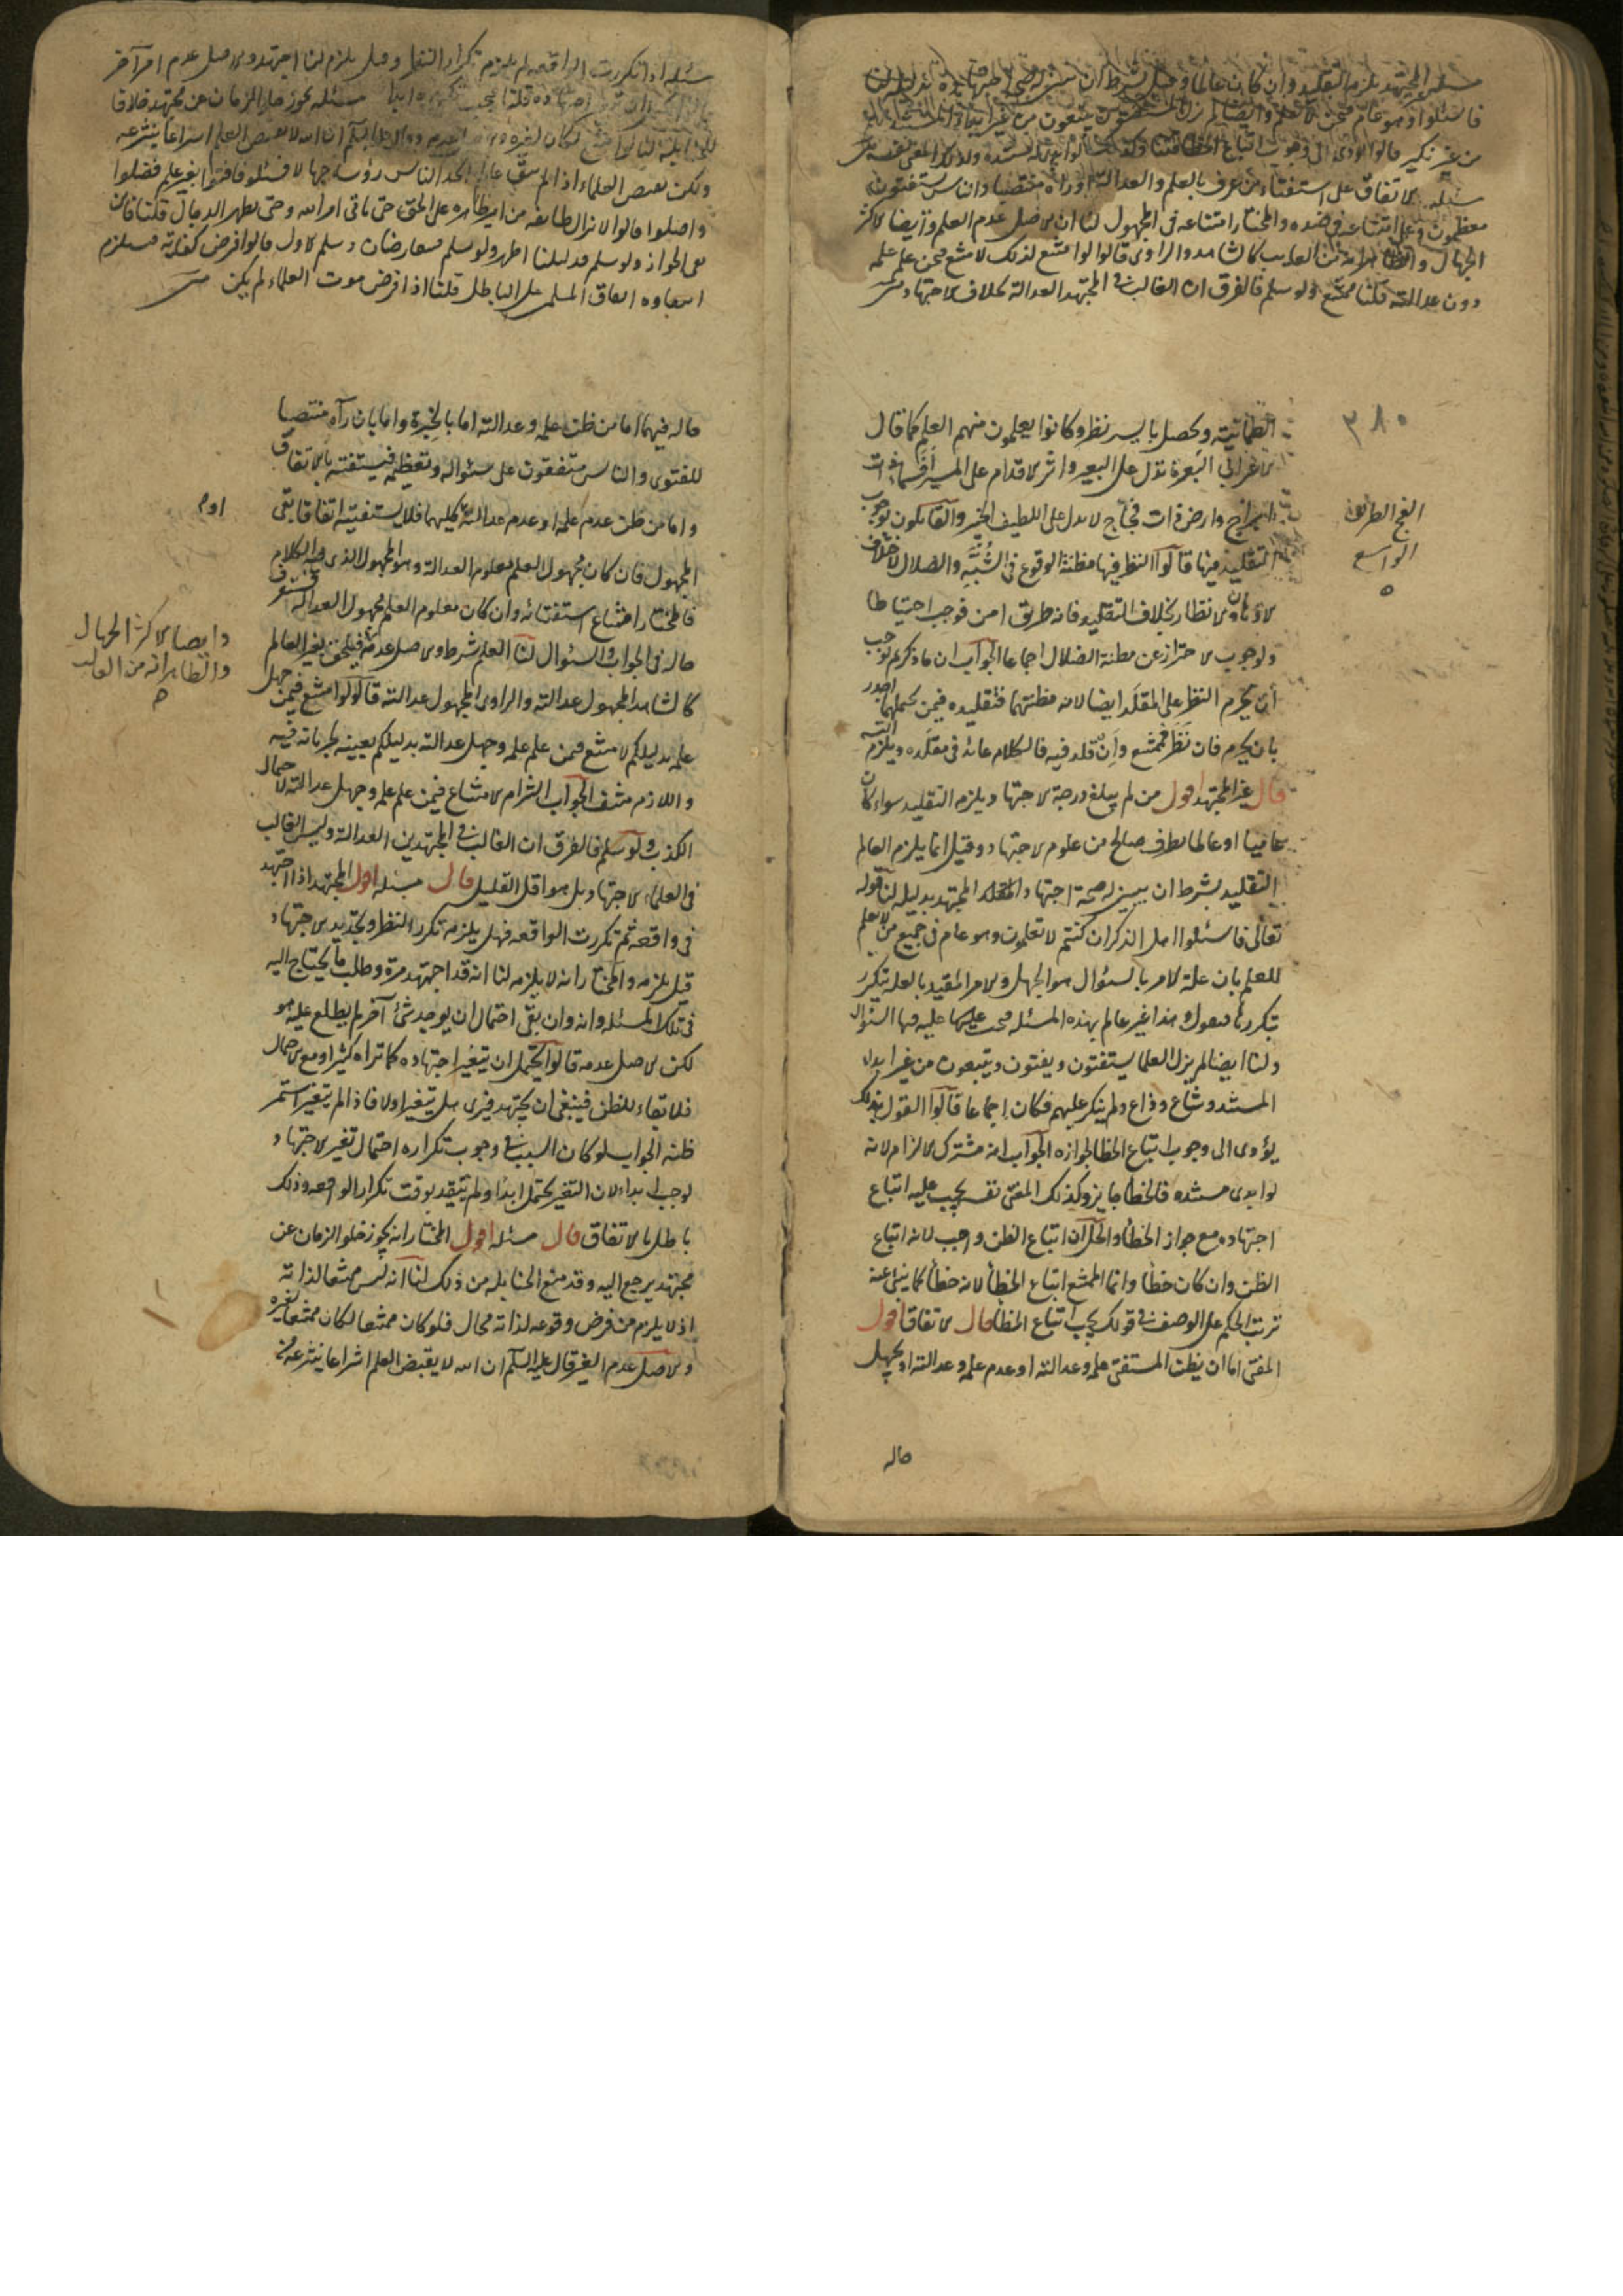 فاسئلوا وهو عام فيمن لا يعلم وايضا لم يزل المستفتون يتبعون من غير ابداء
من غير نكير قالوا يؤدى الى وجوب اتباع الخطا قلنا وكذلك لو ابدى له مستنده وكذلك المفتى نفسه
مسئله الاتفاق على استفتاء من عرف بالعلم والعدالة او رآه منتصبا والناس يستفتونه
معظمون وعلى امتناعه فى ضده والمختار امتناعه فى المجهول لنا ان الاصل عدم العلم وايضا الاكثر
الجهال والظاهر انه من الغالب كالشاهد والراوى قالوا لو امتنع لذلك لامتنع فيمن علم علمه
دون عدالته قلنا ممتنع ولو سلم فالفرق ان الغالب فى المجتهد العدالة بخلاف الاجتهاد
٣٨٠
الطمانينة ويحصل بايسر نظر وكانوا يعلمون منهم العلم كما قال
الاعرابى البعرة تدل على البعير واثر الاقدام على المسير افسماء ذات
ابراج وارض ذات فجاج لا يدل على اللطيف الخبير والقائلون بوجوب
الفج الطريق
الواسع
التقليد فيها قالوا النظر فيها مظنة الوقوع فى الشبه والضلال لاختلاف
الاذهان والانظار بخلاف التقليد فانه طريق امن فوجب احتياطا
ولوجوب الاحتراز عن مظنة الضلال اجماعا الجواب ان ما ذكرتم يوجب
ان يحرم النظر على المقلد ايضا لانه مظنتهما فتقليده فيمن يحملهما اجدر
بان يحرم فان نظر فممتنع وان قلد فيه فالكلام عائد فى مقلده ويلزم التسلسل
قال غير المجتهد اقول من لم يبلغ درجة الاجتهاد يلزمه التقليد سواء كان
عاميا او عالما بطرف صالح من علوم الاجتهاد وقيل انما يلزم العالم
التقليد بشرط ان يبين له صحة اجتهاد المقلد المجتهد بدليله لنا قوله
تعالى فاسئلوا اهل الذكر ان كنتم لا تعلمون وهو عام فى جميع من لا يعلم
للعلم بان علة الامر بالسئوال هو الجهل والامر المقيد بالعلة يتكرر
بتكررها فنقول وهذا غير عالم بهذه المسئله فيجب عليه فيها السئوال
ولنا ايضا لم يزل العلما يستفتون ويفتون ويتبعون من غير ابداء
المستند وشاع وذاع ولم ينكر عليهم فكان اجماعا قالوا القول بذلك
يؤدى الى وجوب اتباع الخطا لجوازه الجواب انه مشترك الالزام لانه
لو ابدى مستنده فالخطا جايز وكذلك المفتى نفسه يجب عليه اتباع
اجتهاده مع جواز الخطا والحل ان اتباع الظن واجب لانه اتباع
الظن وان كان خطا وانما الممتنع اتباع الخطا لانه خطا كما ينبى عنه
ترتب الحكم على الوصف فى قولك يجب اتباع الخطا قال الاتفاق اقول
المفتى اما ان يظن المستفتى علمه وعدالته او عدم علمه وعدالته او يجهل
حاله
مسئله اذا تكررت الواقعه لم يلزم تكرار النظر وقيل يلزم لنا اجتهد والاصل عدم امر آخر
ولكن بقبض العلماء اذا لم يبق عالم اتخذ الناس رؤساء جهالا فسئلوا فافتوا بغير علم فضلوا
واضلوا قالوا لا يزال طايفة من امتى ظاهرة على الحق حتى ياتى امر الله وحتى يظهر الدجال قلنا فاين
نفى الجواز ولو سلم فدليلنا اظهر ولو سلم فيتعارضان ويسلم الاول قالوا فرض كفاية فيستلزم
انتفاؤه اتفاق المسلمين على الباطل قلنا اذا فرض موت العلماء لم يكن
حاله فيهما اما من ظن علمه وعدالته اما بالخبرة واما بان رآه منتصبا
للفتوى والناس متفقون على سئواله وتعظيمه فيستفتيه بالاتفاق
واما من ظن عدم علمه او عدم عدالته او كليهما فلا يستفتيه اتفاقا بقى
المجهول فان كان مجهول العلم معلوم العدالة وهو المجهول الذى فيه الكلام
فالمختار امتناع استفتائه وان كان معلوم العلم مجهول العدالة فستعرف
حاله فى الجواب والسئوال لنا العلم شرط والاصل عدمه فيلحق بغير العالم
وايضا الاكثر الجهال
والظاهر انه من الغالب
كالشاهد المجهول عدالته والراوى المجهول عدالته قالوا لو امتنع فيمن جهل
علمه بدليلكم لامتنع فيمن علم علمه وجهل عدالته بدليلكم بعينه لجريانه فيه
واللازم منتف الجواب التزام الامتناع فيمن علم علمه وجهل عدالته لاحتمال
الكذب ولو سلم فالفرق ان الغالب فى المجتهدين العدالة وليس الغالب
فى العلماء الاجتهاد بل هو اقل القليل قال مسئله اقول المجتهد اذا اجتهد
فى واقعه ثم تكررت الواقعه فهل يلزمه تكرر النظر وتجديد الاجتهاد
قيل يلزمه والمختار انه لا يلزمه لنا انه قد اجتهد مرة وطلب ما يحتاج اليه
فى تلك المسئله وانه وان بقى احتمال ان يوجد شئ آخر لم يطلع عليه هو
لكن الاصل عدمه قالوا يحتمل ان يتغير اجتهاده كما تراه كثيرا ومع الاحتمال
فلا بقاء للظن فينبغى ان يجتهد فيرى هل يتغير او لا فاذا لم يتغير استمر
ظنه الجواب لو كان السبب فى وجوب تكراره احتمال تغير الاجتهاد
لوجب ابدا لان التغير يحتمل ابدا ولم يتقيد بوقت تكرار الواقعه وذلك
باطل بالاتفاق قال مسئله اقول المختار انه يجوز خلو الزمان عن
مجتهد يرجع اليه وقد منع الحنابله من ذلك لنا انه ليس ممتنعا لذاته
اذ لا يلزم من فرض وقوعه لذاته محال فلو كان ممتنعا لكان ممتنعا لغيره
والاصل عدم الغير قال عليه السلم ان الله لا يقبض العلم انتزاعا ينتزعه